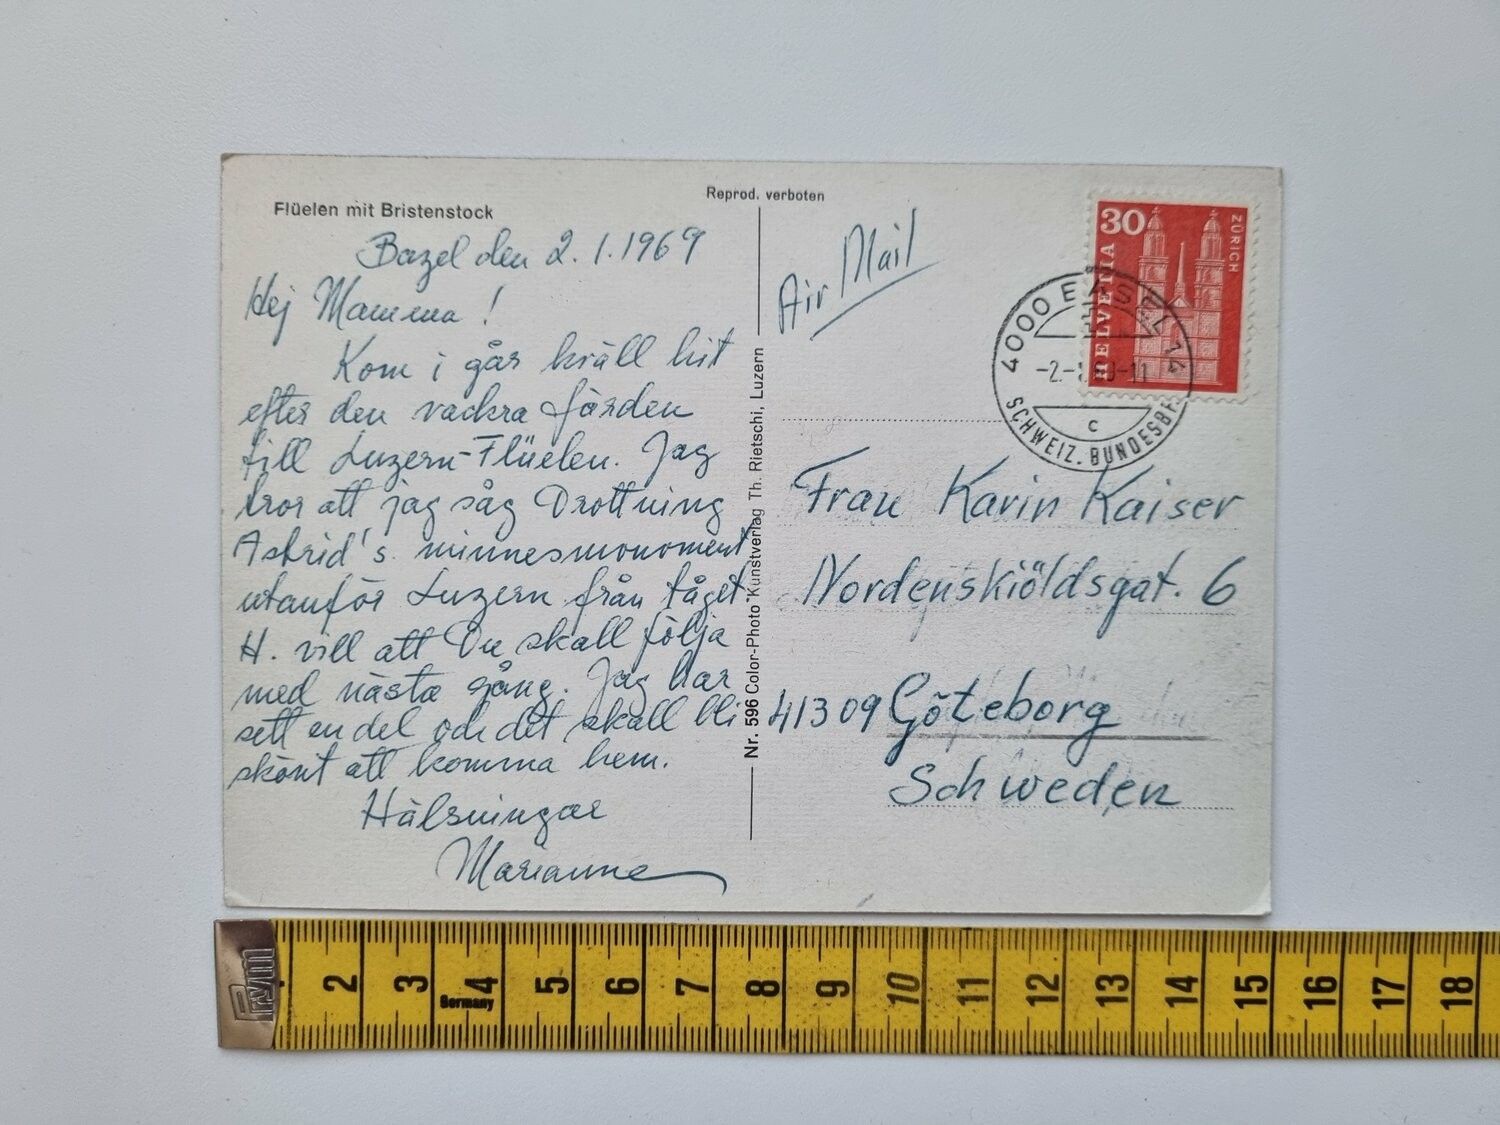 Flüelen mit Bristenstock
Reprod. verboten
Bazel den 2.1.1969
Hej Mamma!
Kom i går kväll hit
efter den vackra färden
till Luzern-Flüelen. Jag
tror att jag såg Drottning
Astrid's minnesmonoment
utanför Luzern från tåget
H. vill att Du skall följa
med nästa gång. Jag har
sett en del och det skall bli
skönt att komma hem.
Hälsningar
Marianne
Nr. 596 Color-Photo Kunstverlag Th. Rietschi, Luzern
Air Mail
30
HELVETIA
ZÜRICH
4000 BASEL 14
-2.-1.69-11
C
SCHWEIZ. BUNDESBF.
Frau Karin Kaiser
Nordenskiöldsgat. 6
41309 Göteborg
Schweden
Prym
2 3 4 5 6 7 8 9 10 11 12 13 14 15 16 17 18
Germany